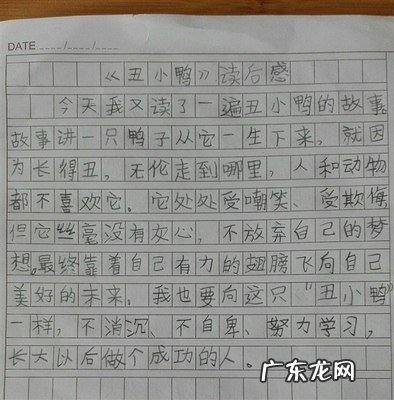 DATE ____/____/____
《丑小鸭》读后感
今天我又读了一遍丑小鸭的故事。
故事讲一只鸭子从它一生下来，就因
为长得丑，无伦走到哪里，人和动物
都不喜欢它。它处处受嘲笑、受欺侮
但它丝毫没有灰心，不放弃自己的梦
想。最终靠着自己有力的翅膀飞向自己
美好的未来。我也要向这只“丑小鸭”
一样，不消沉、不自卑、努力学习，
长大以后做个成功的人。
广东龙网